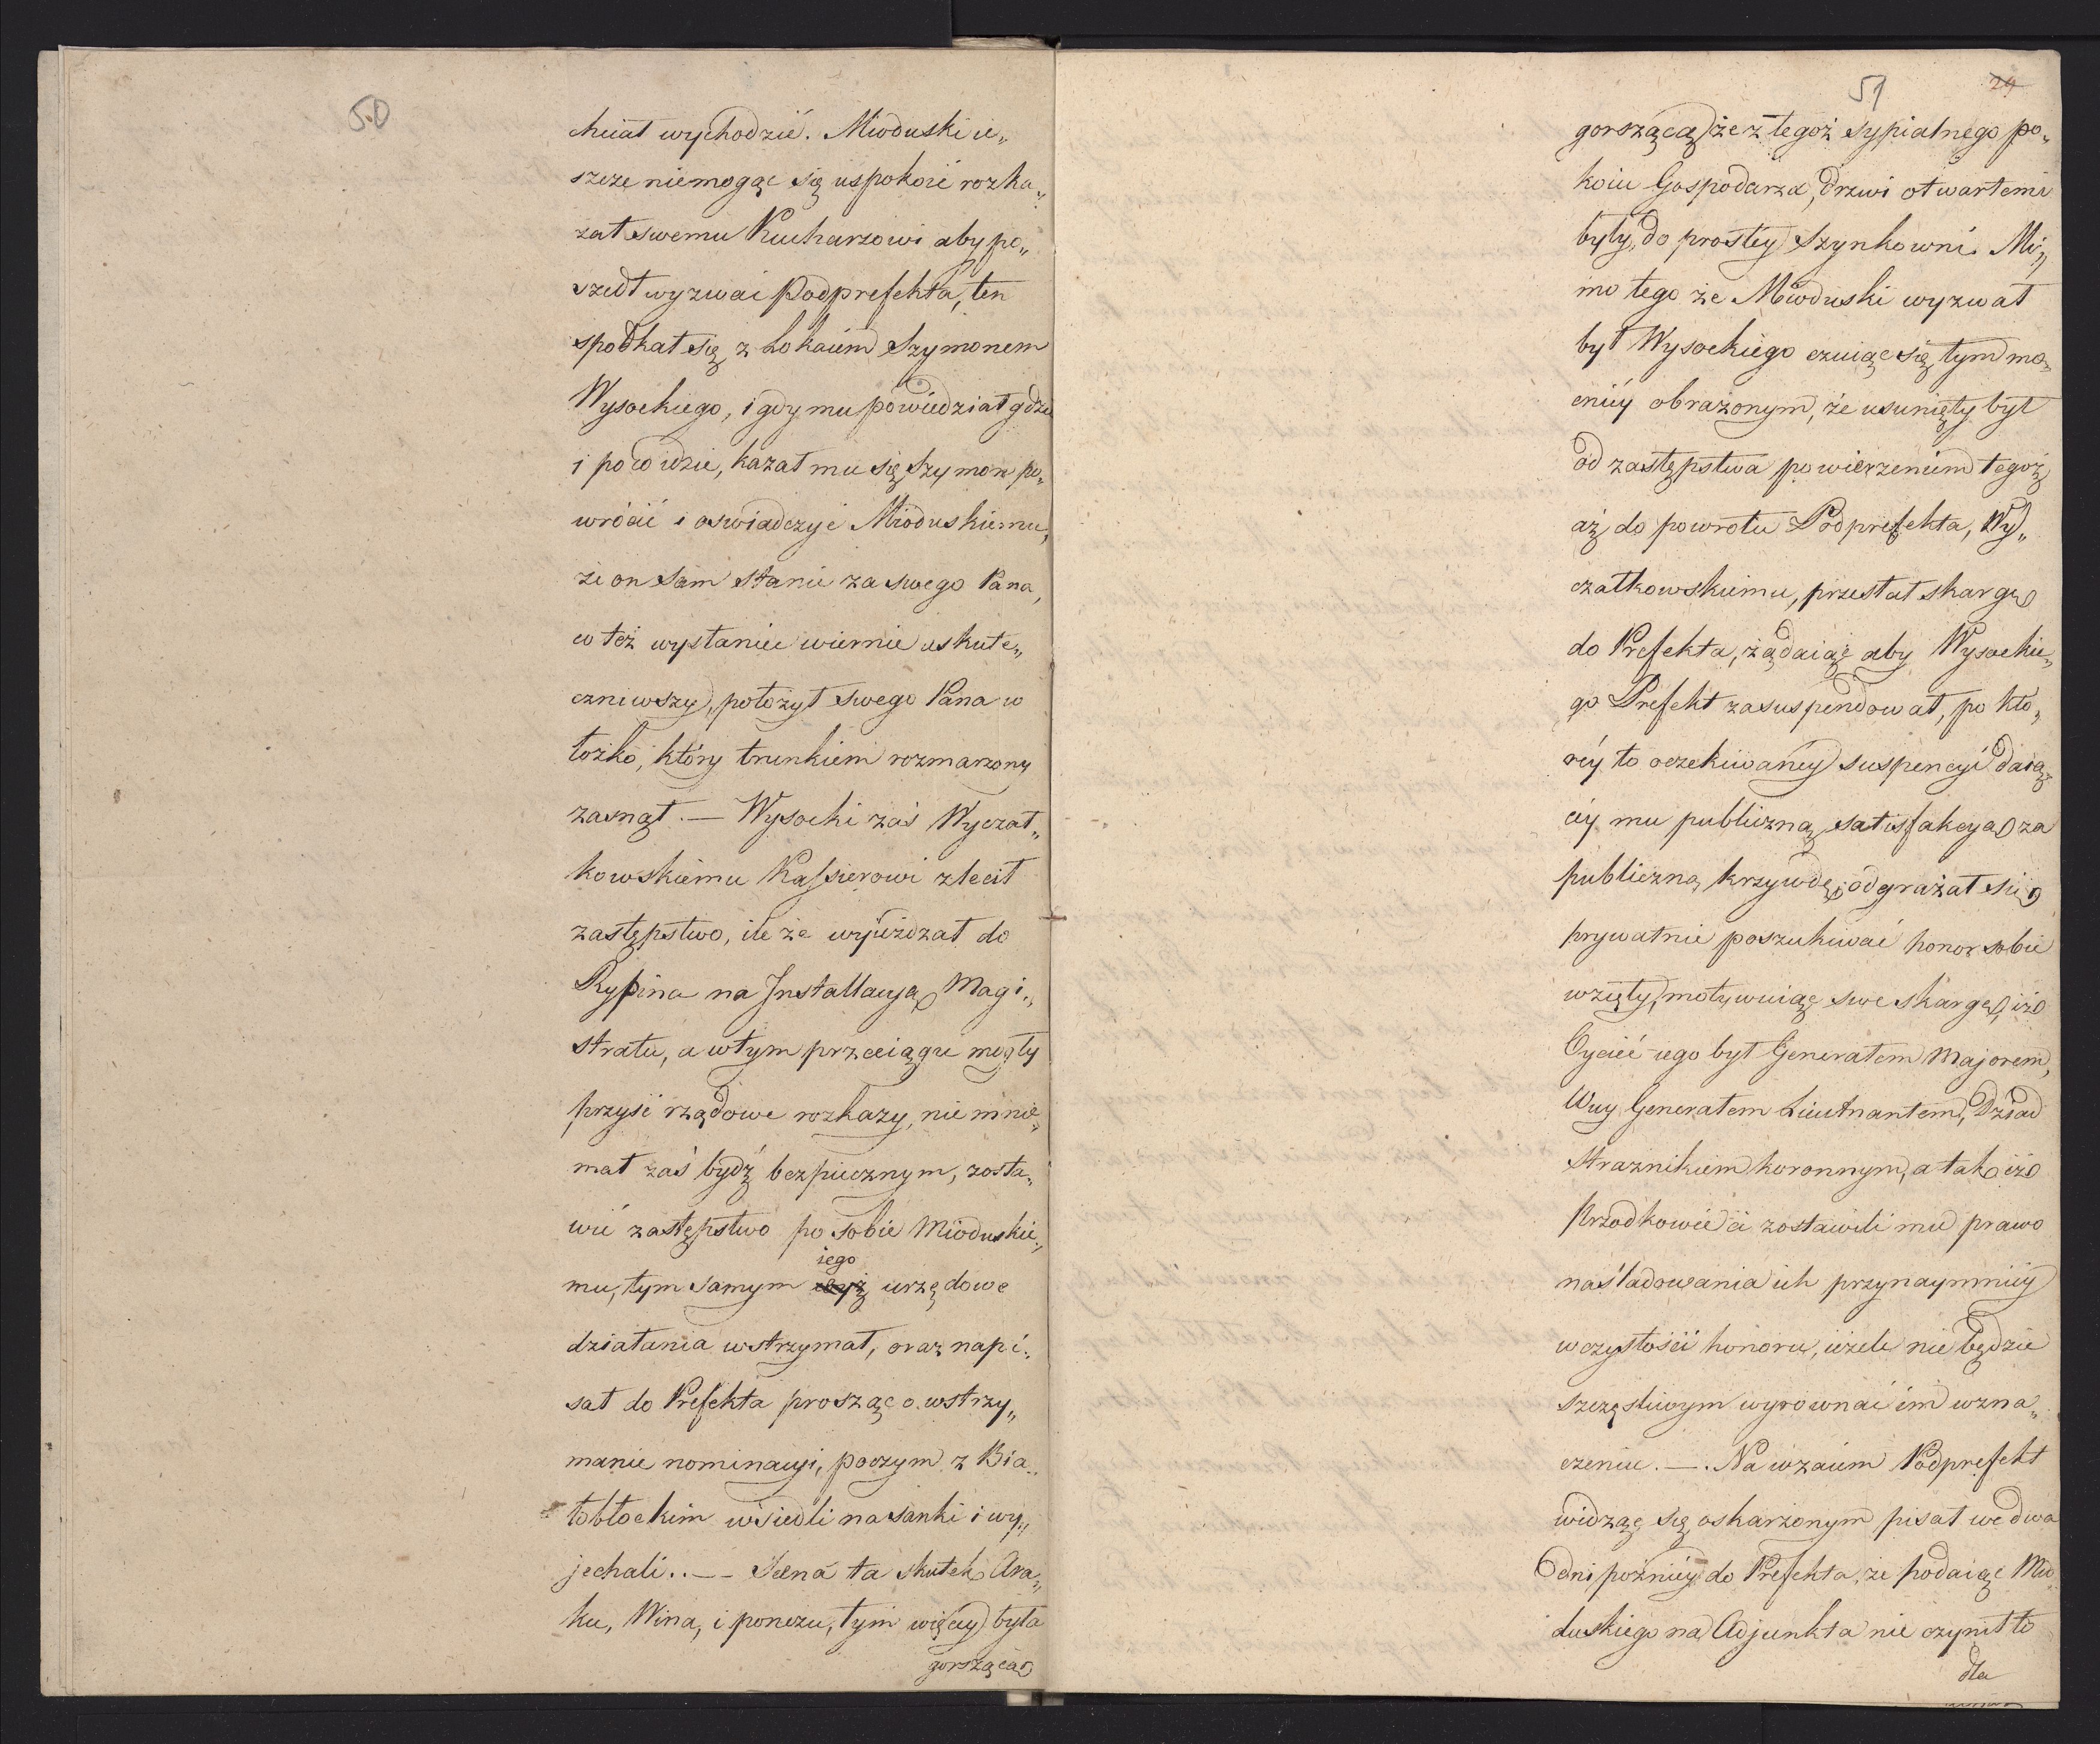 50
chciał wychodzić. Mioduski ie„
szcze niemogąc się uspokoić rozka„
zał swemu Kucharzowi aby po„
szedł wyzwać Podprefekta, ten
spodkał się z Lokaiem Szymonem
Wysockiego, i gdy mu powiedział gdzie
i po co idzie, kazał mu się Szymon po„
wrócić i oswiadczyć Mioduskiemu,
że on sam stanie za swego Pana,
co też wysłaniec wiernie uskute„
czniwszy, położył swego Pana w
łożko, który trunkiem rozmarzony
zasnął. — Wysocki zaś Wyczał„
kowskiemu Kassierowi zlecił
zastępstwo, ile że wyieżdzał do
Rypina na Installacyą Magi„
stratu, a w tym przeciągu mogły
przyść rządowe rozkazy, nie mnie„
mał zaś bydź bezpiecznym, zosta„
wić zastępstwo po sobie Mioduskie„
iego
mu, tym samym urzędowe
działania wstrzymał, oraz napi„
sał do Prefekta prosząc o wstrzy„
manie nominacyi, poczym z Bia„
łobłockim wsiedli na sanki i wy„
jechali.. — Scena ta skutek Ara„
ku, Wina, i ponczu, tym więcey była
gorszącą
51
29
gorszącą że z tegoż sypialnego po„
koiu Gospodarza, drzwi otwartemi
były, do prostey Szynkowni. Mi„
mo tego że Mioduski wyzwał
był Wysockiego czuiąc się tym mo„
cniey obrażonym, że usunięty był
od zastępstwa powierzeniem tegoż
aż do powrotu Podprefekta, Wy„
czałkowskiemu, przesłał skargę
do Prefekta, żądaiąc aby Wysockie„
go Prefekt zasuspendował, po któ„
rey to oczekiwaney suspencyi daią„
cey mu publiczną satisfakcyą za
publiczną krzywdę, odgrażał się
prywatnie poszukiwać honor sobie
wzięty, motywuiąc swe skargę, iż
Oyciec iego był Generałem Majorem,
Wuy Generałem Lieutnantem, Dziad
Straznikiem koronnym, a tak iż
Przodkowie ci zostawili mu prawo
naśladowania ich przynaymniey
w czystości honoru, ieżeli nie będzie
szczęśliwym wyrownać im w zna„
czeniu. —. Nawzaiem Podprefekt
widząc się oskarżonym pisał we dwa
dni pożniey do Prefekta, że podaiąc Mio„
duskiego na Adjunkta nie czynił to
dla